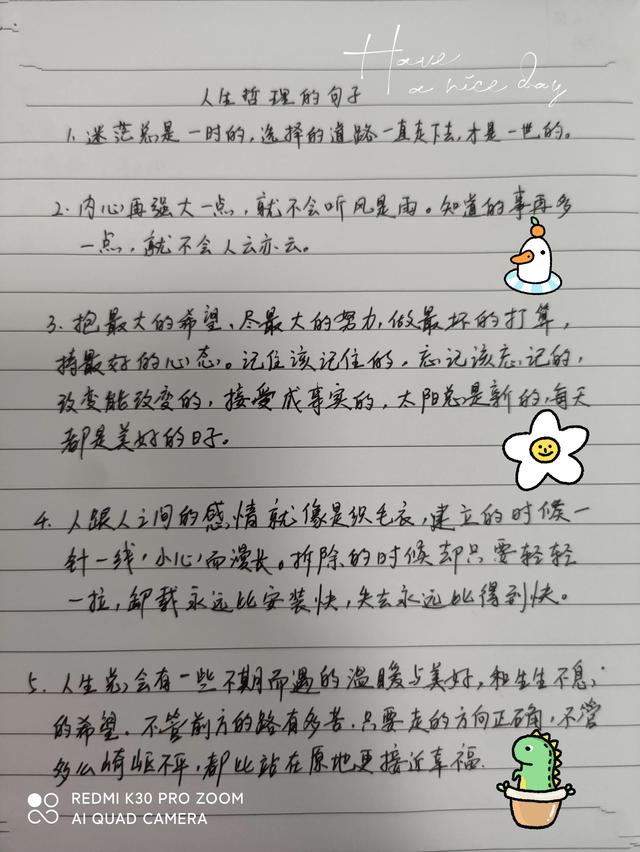 Have
a nice day
人生哲理的句子
1. 迷茫总是一时的，选择的道路一直走下去，才是一世的。
2. 内心再强大一点，就不会听风是雨。知道的事再多
一点，就不会人云亦云。
3. 抱最大的希望、尽最大的努力，做最坏的打算，
持最好的心态。记住该记住的，忘记该忘记的，
改变能改变的，接受成事实的，太阳总是新的，每天
都是美好的日子。
4. 人跟人之间的感情就像是织毛衣，建立的时候一
针一线，小心而漫长。拆除的时候却只要轻轻
一拉，卸载永远比安装快，失去永远比得到快。
5. 人生总会有一些不期而遇的温暖与美好，和生生不息
的希望。不管前方的路有多苦，只要走的方向正确，不管
多么崎岖不平，都比站在原地更接近幸福.
REDMI K30 PRO ZOOM
AI QUAD CAMERA